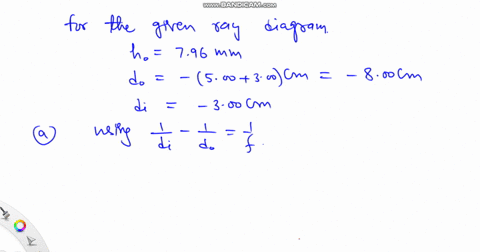 WWW.BANDICAM.COM
for the given ray diagram
h₀ = 7.96 mm
d₀ = -(5.00+3.00) Cm = -8.00 Cm
di = -3.00 Cm
(a) using 1/di - 1/d₀ = 1/f